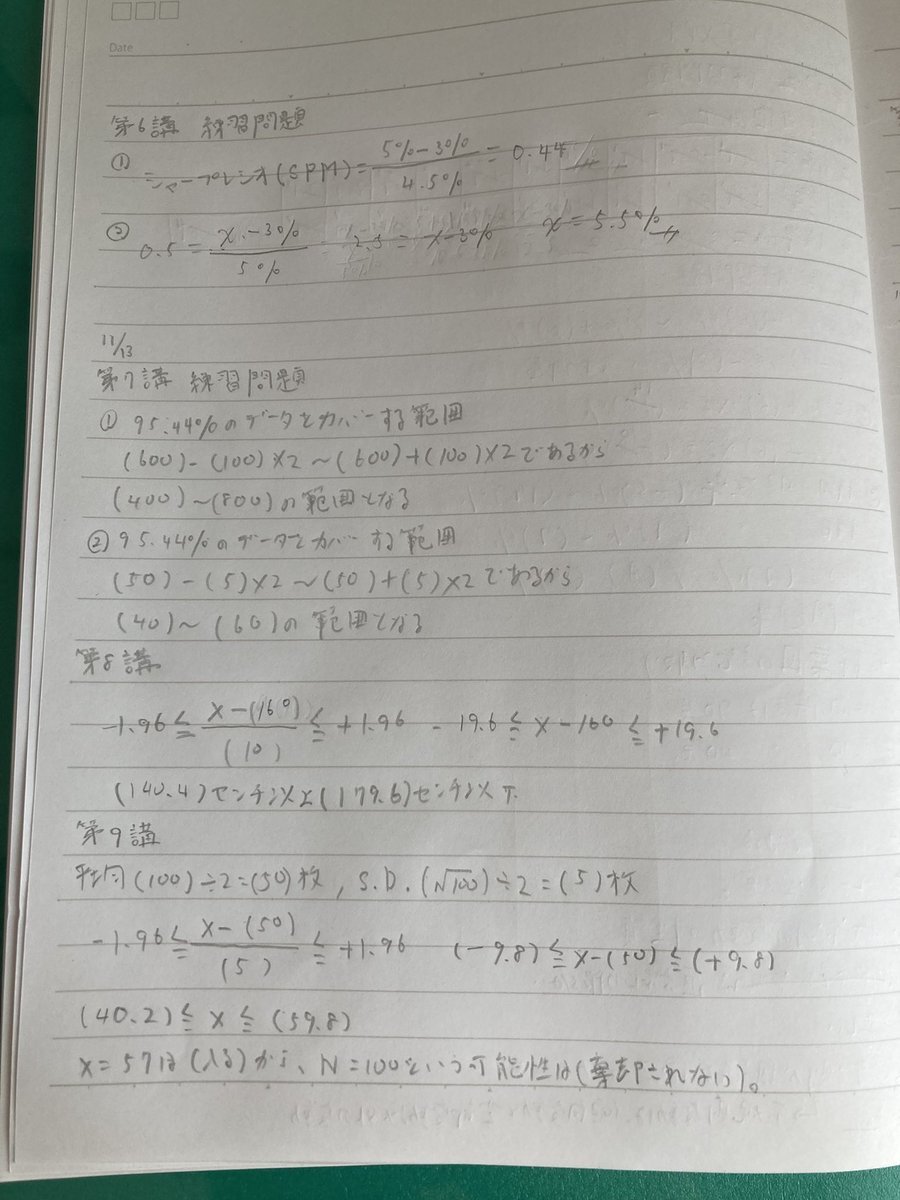 Date
第6講 練習問題
① シャープレシオ(SPM)=5%-3%/4.5%=0.44
② 0.5=x-3%/5% 2.5=x-3% x=5.5%
11/13
第7講 練習問題
① 95.44%のデータをカバーする範囲
(600)-(100)×2~(600)+(100)×2であるから
(400)~(800)の範囲となる
② 95.44%のデータをカバーする範囲
(50)-(5)×2~(50)+(5)×2であるから
(40)~(60)の範囲となる
第8講
-1.96≦x-(160)/(10)≦+1.96 -19.6≦x-160≦+19.6
(140.4)センチ以上(179.6)センチ以下
第9講
平均(100)÷2=(50)枚, S.D.(√100)÷2=(5)枚
-1.96≦x-(50)/(5)≦+1.96 (-9.8)≦x-(50)≦(+9.8)
(40.2)≦x≦(59.8)
x=57は(入る)から、N=100という可能性は(棄却されない)。